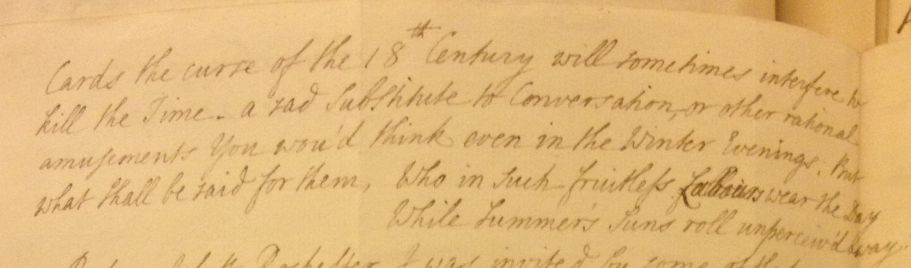 Cards the curse of the 18th Century will sometimes interfere to
kill the Time - a sad Substitute to Conversation, or other rational
amusements You wou'd think even in the Winter Evenings. But
what shall be said for them, Who in such fruitless Labours wear the Day
While Summer's Suns roll unperceiv'd away.
I was invited by some of the